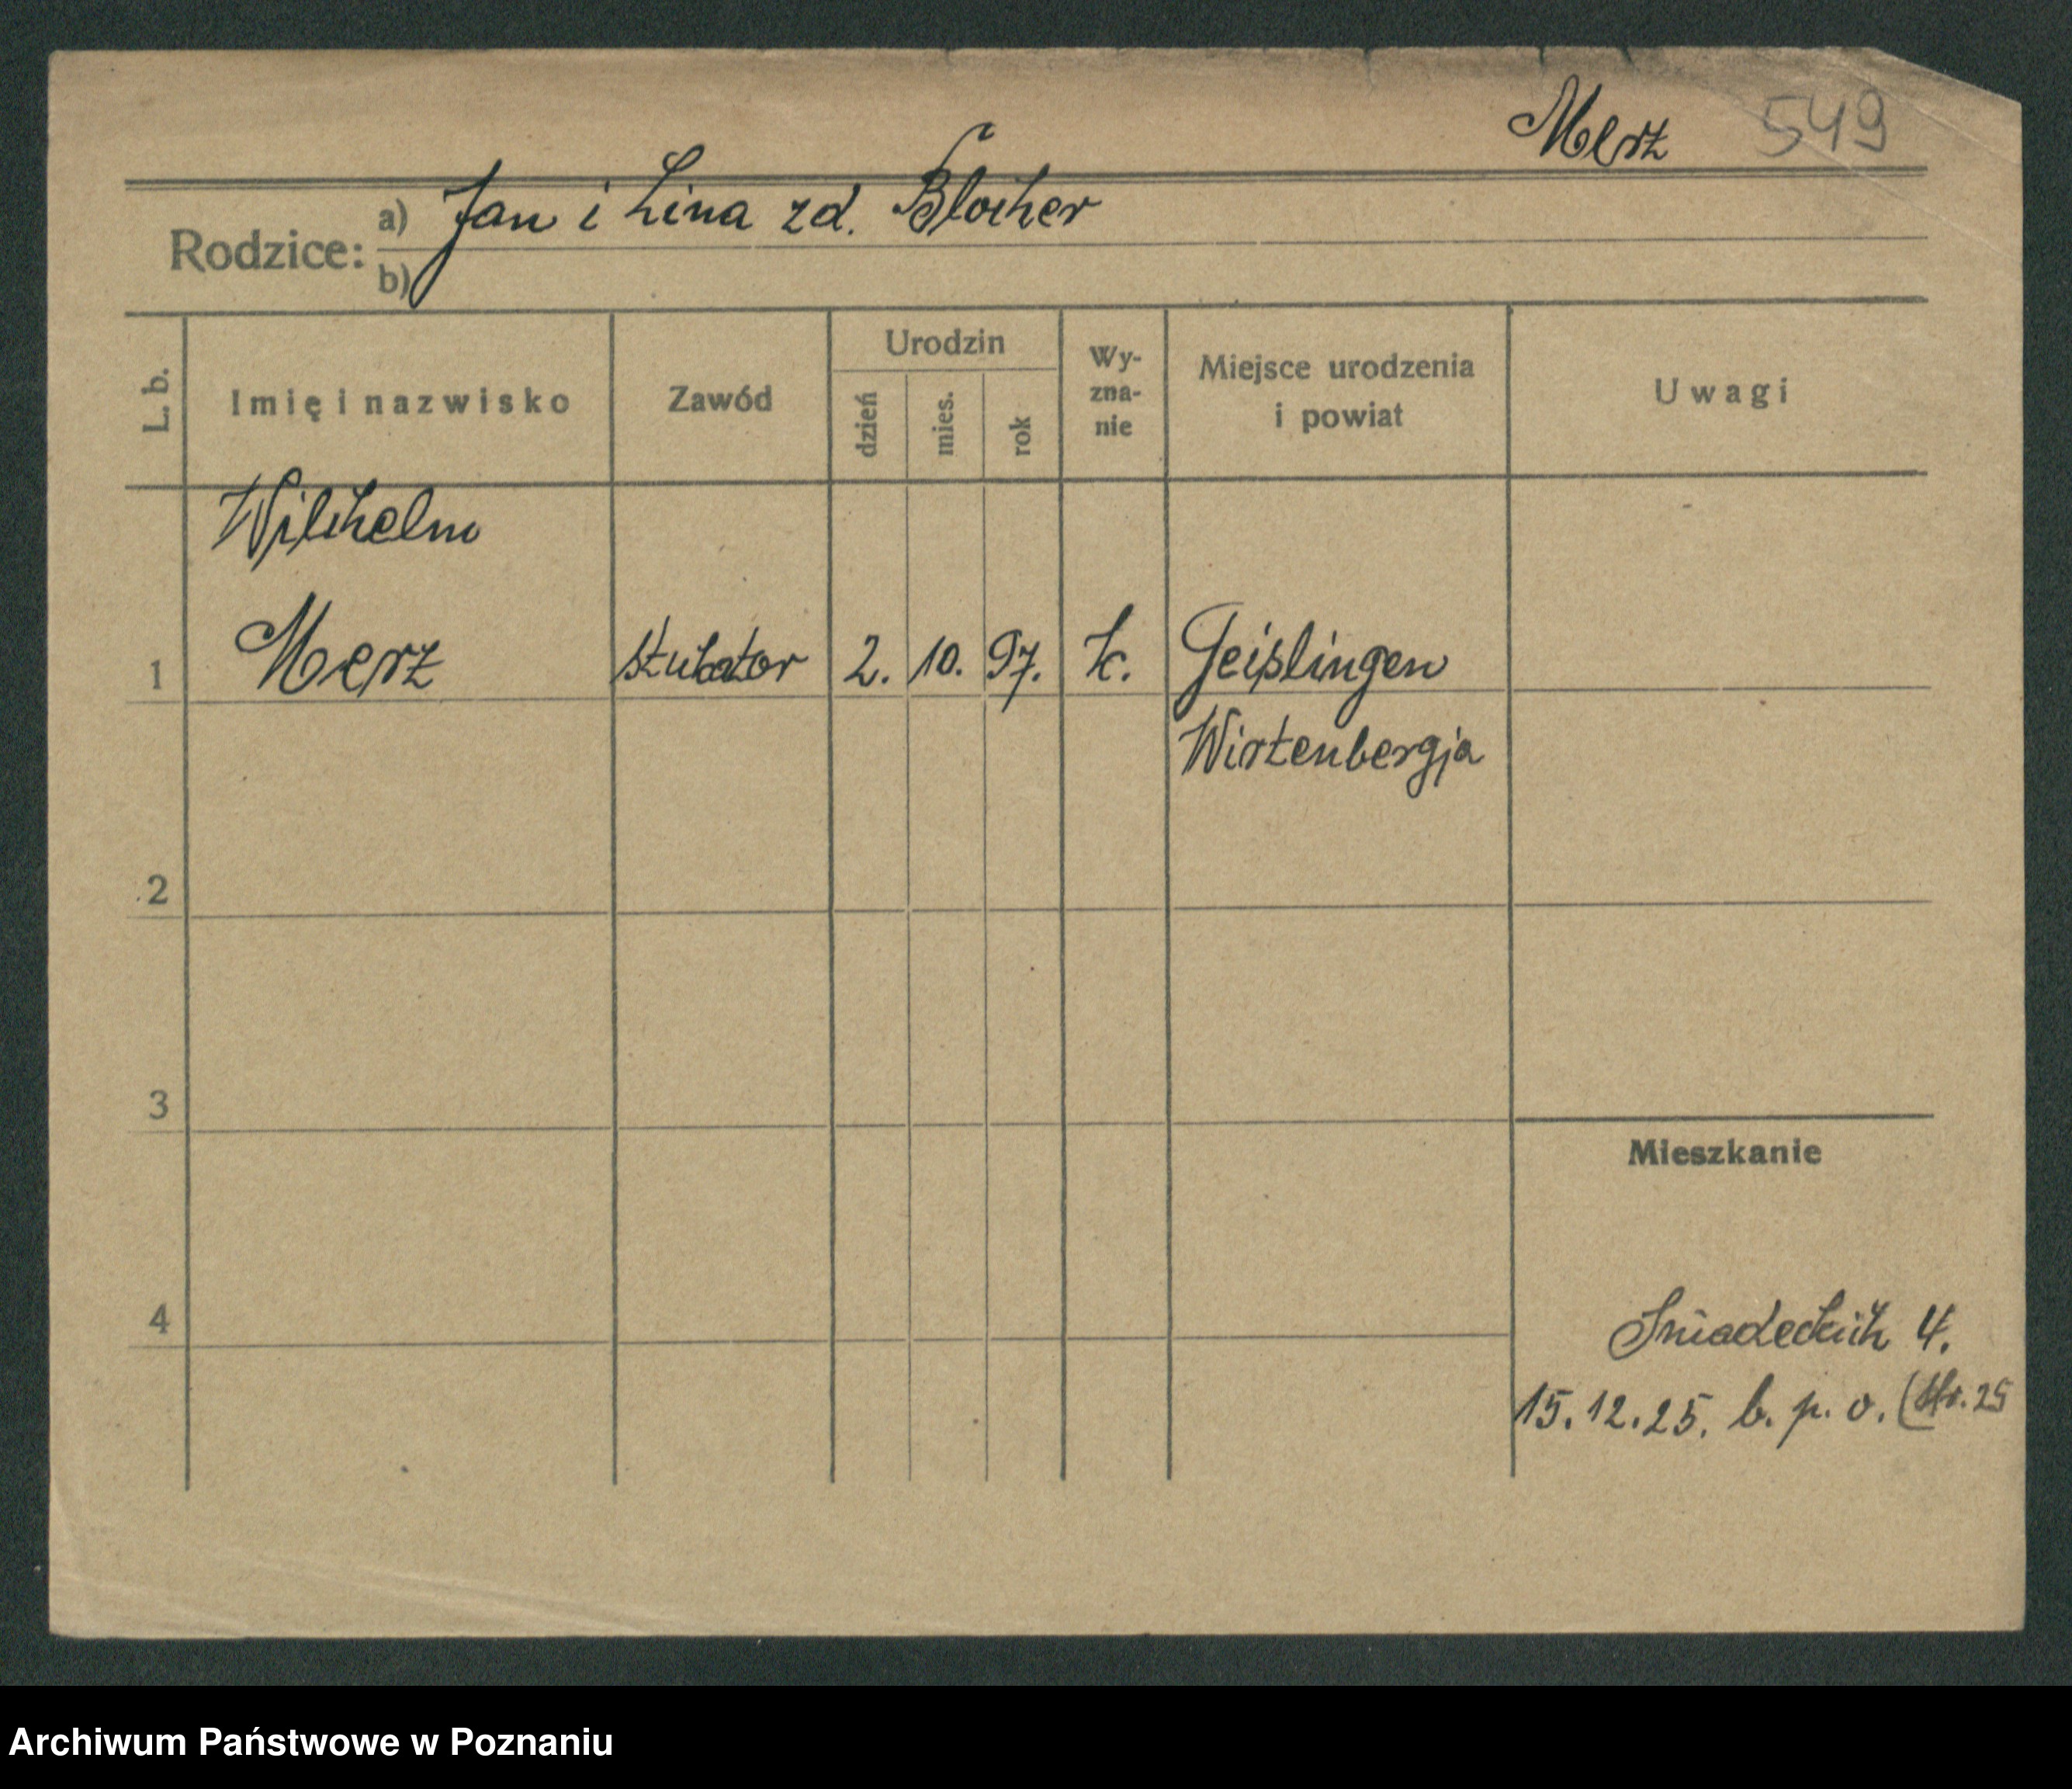 Merz 549
Rodzice: a) Jan i Lina zd. Blocher
b)
L. b. Imię i nazwisko Zawód Urodzin dzień mies. rok Wy-zna-nie Miejsce urodzenia i powiat Uwagi
Wilchelm
1 Merz sztukator 2. 10. 97. k. Geislingen
Wirtenbergja
2
3
Mieszkanie
4 Śniadeckich 4.
15.12.25. b. p. o. 25
Archiwum Państwowe w Poznaniu